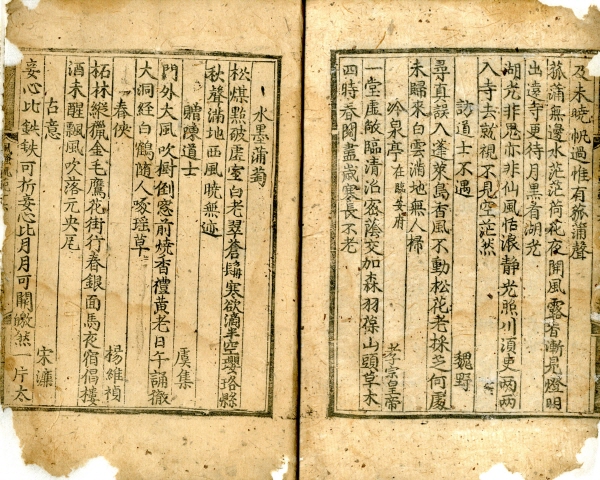 及未曉帆過惟有菰蒲聲
菰蒲無邊水茫茫荷花夜開風露香漸見燈明
出遠寺更待月黒看湖光
湖光非鬼亦非仙風恬浪静光照川須㪅兩兩
入寺去就視不見空茫然
訪道士不遇 魏野
尋真誤入蓬萊島香風不動松花老採芝何處
未歸來白雲滿地無人掃
冷泉亭 在臨安府 孝宗皇帝
一堂虚敞臨清沼密蔭交加森羽葆山頭草木
四時春閱盡歳寒長不老
水墨蒲萄
松煤點破虚室白老翠蒼髯寒欲滴半空瓔珞縣
秋聲滿地西風曉無迹
贈陳道士 虞集
門外大風吹樹倒窓前燒香禮黄老日午誦徹
大洞經白鶴随人啄瑶草
春俠 楊維禎
柘林縱獵金毛鷹花街行春銀面馬夜宿倡樓
酒未醒飄風吹落元央尾
古意 宋濂
妾心比鉄鉄可折妾心比月月可開皦然一片太